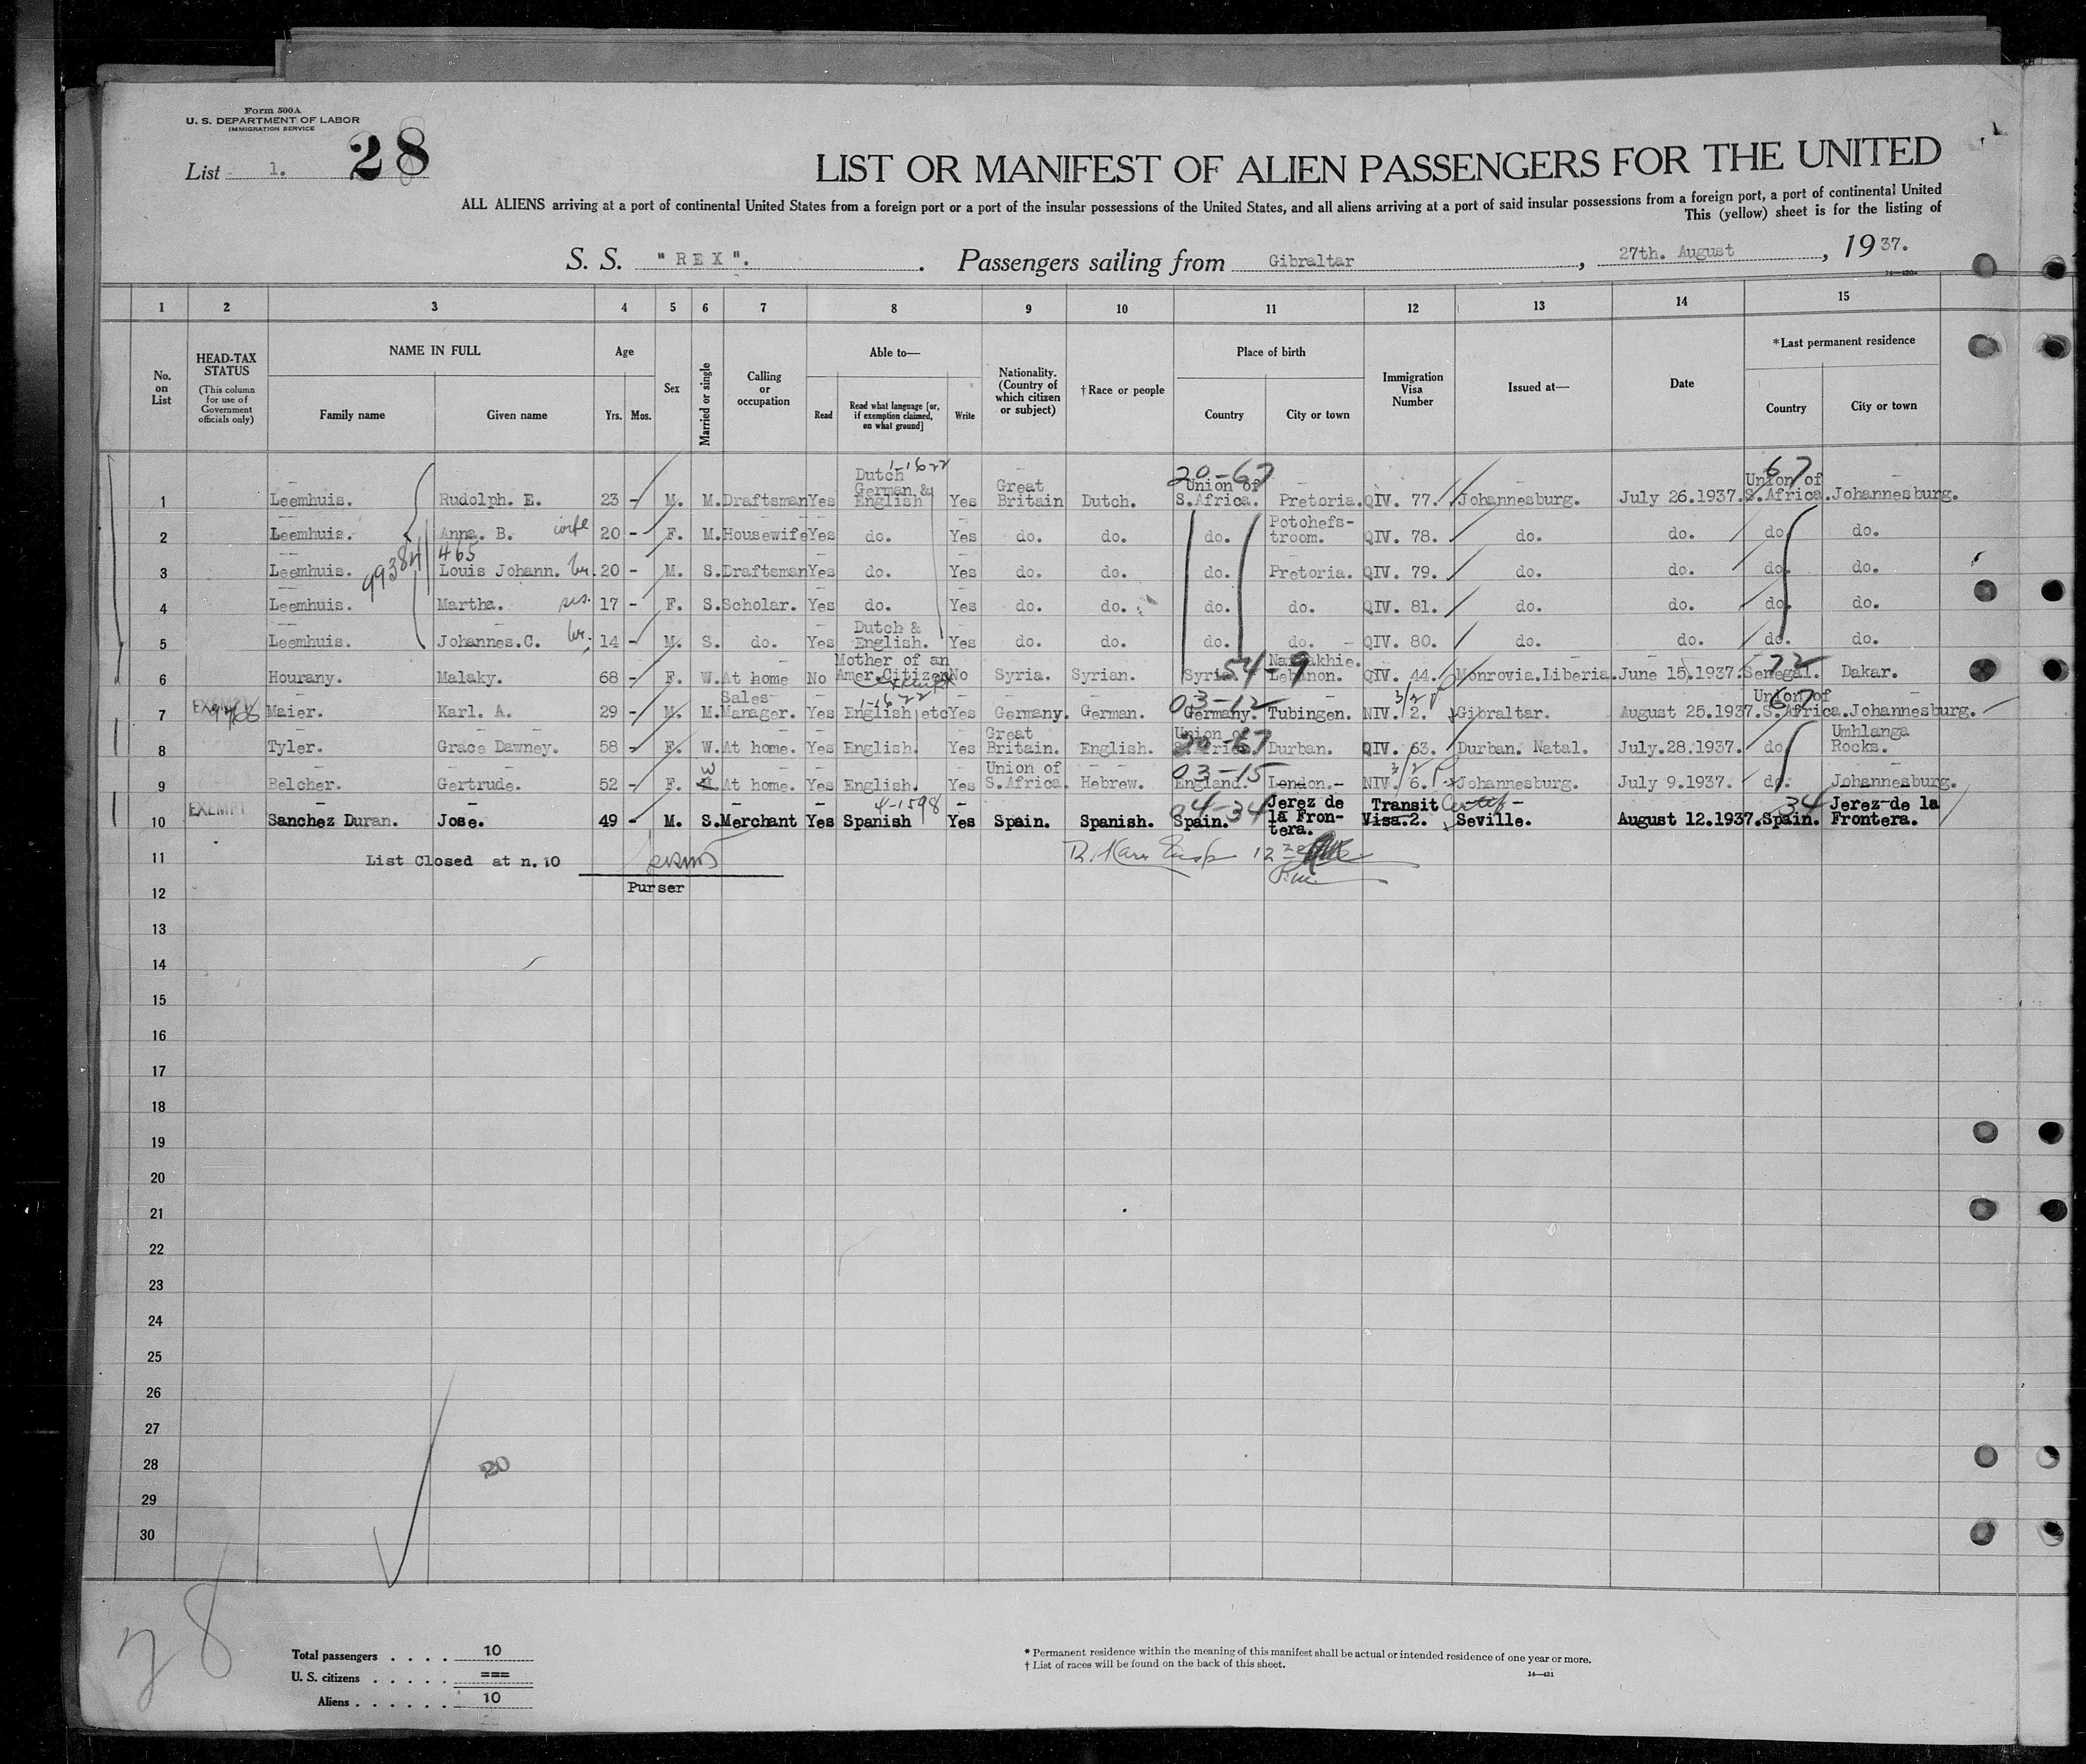 Form 500A
U. S. DEPARTMENT OF LABOR
IMMIGRATION SERVICE
List 1. 28
LIST OR MANIFEST OF ALIEN PASSENGERS FOR THE UNITED
ALL ALIENS arriving at a port of continental United States from a foreign port or a port of the insular possessions of the United States, and all aliens arriving at a port of said insular possessions from a foreign port, a port of continental United
This (yellow) sheet is for the listing of
S. S. "REX". Passengers sailing from Gibraltar, 27th. August, 1937.
1 2 3 4 5 6 7 8 9 10 11 12 13 14 15
No. on List
HEAD-TAX STATUS (This column for use of Government officials only)
NAME IN FULL
Family name Given name
Age
Yrs. Mos.
Sex
Married or single
Calling or occupation
Able to—
Read Read what language [or, if exemption claimed, on what ground] Write
Nationality. (Country of which citizen or subject)
†Race or people
Place of birth
Country City or town
Immigration Visa Number
Issued at—
Date
*Last permanent residence
Country City or town
1 Leemhuis. Rudolph. E. 23 - M. M. Draftsman Yes Dutch German & English Yes Great Britain Dutch. Union of S.Africa. Pretoria. QIV. 77. Johannesburg. July 26.1937. Union of S.Africa. Johannesburg.
20-67 67 1-1622
2 Leemhuis. Anna. B. wife 20 - F. M. Housewife Yes do. Yes do. do. do. Potchefs-troom. QIV. 78. do. do. do. do.
99384/465
3 Leemhuis. Louis Johann. br. 20 - M. S. Draftsman Yes do. Yes do. do. do. Pretoria. QIV. 79. do. do. do. do.
4 Leemhuis. Martha. sis. 17 - F. S. Scholar. Yes do. Yes do. do. do. do. QIV. 81. do. do. do. do.
5 Leemhuis. Johannes.C. br. 14 - M. S. do. Yes Dutch & English. Yes do. do. do. do. QIV. 80. do. do. do. do.
6 Hourany. Malaky. 68 - F. W. At home No Mother of an Amer.Citizen exempt No Syria. Syrian. Syria. 54-9 Lebanon. QIV. 44. Monrovia.Liberia. June 15.1937. Senegal. 72 Dakar.
7 EXEMPT Maier. Karl. A. 29 - M. M. Sales Manager. Yes English etc 1-1622 Yes Germany. German. Germany. 03-12 Tubingen. NIV. 2. 3/2 Gibraltar. August 25.1937. Union of S.Africa. 67 Johannesburg.
8 Tyler. Grace Dawney. 58 - F. W. At home. Yes English. Yes Great Britain. English. Union of S.Africa 20-67 Durban. QIV. 63. Durban. Natal. July.28.1937. do. Umhlanga Rocks.
9 Belcher. Gertrude. 52 - F. W At home. Yes English. Yes Union of S.Africa. Hebrew. England. 03-15 London.- NIV. 6. 3/2 Johannesburg. July 9.1937. do. Johannesburg.
10 EXEMPT Sanchez Duran. Jose. 49 - M. S. Merchant Yes Spanish 4-1598 Yes Spain. Spanish. Spain. 04-34 Jerez de la Fron-tera. Transit Visa.2. Certif - Seville. August 12.1937. Spain. 34 Jerez de la Frontera.
11 List Closed at n.10
Purser
12
13
14
15
16
17
18
19
20
21
22
23
24
25
26
27
28 20
29
30
28
Total passengers . . . . 10
U. S. citizens . . . . . ===
Aliens . . . . . . 10
* Permanent residence within the meaning of this manifest shall be actual or intended residence of one year or more.
† List of races will be found on the back of this sheet.
14—431